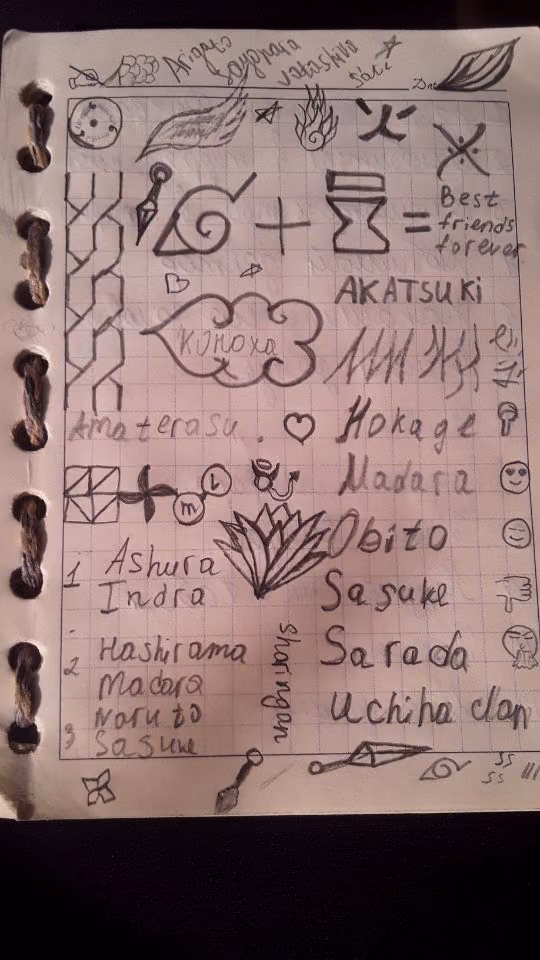 Arigato
Sayonara
vatashiva
Best
friends
forever
AKATSUKI
KOHOXA
Amaterasu.
Hokage
Madara
m
L
Obito
1 Ashura
Indra
Sasuke
2 Hashirama
Madara
Sarada
3 Naruto
Sasuke
Sharingan
Uchiha clan
SS
SS